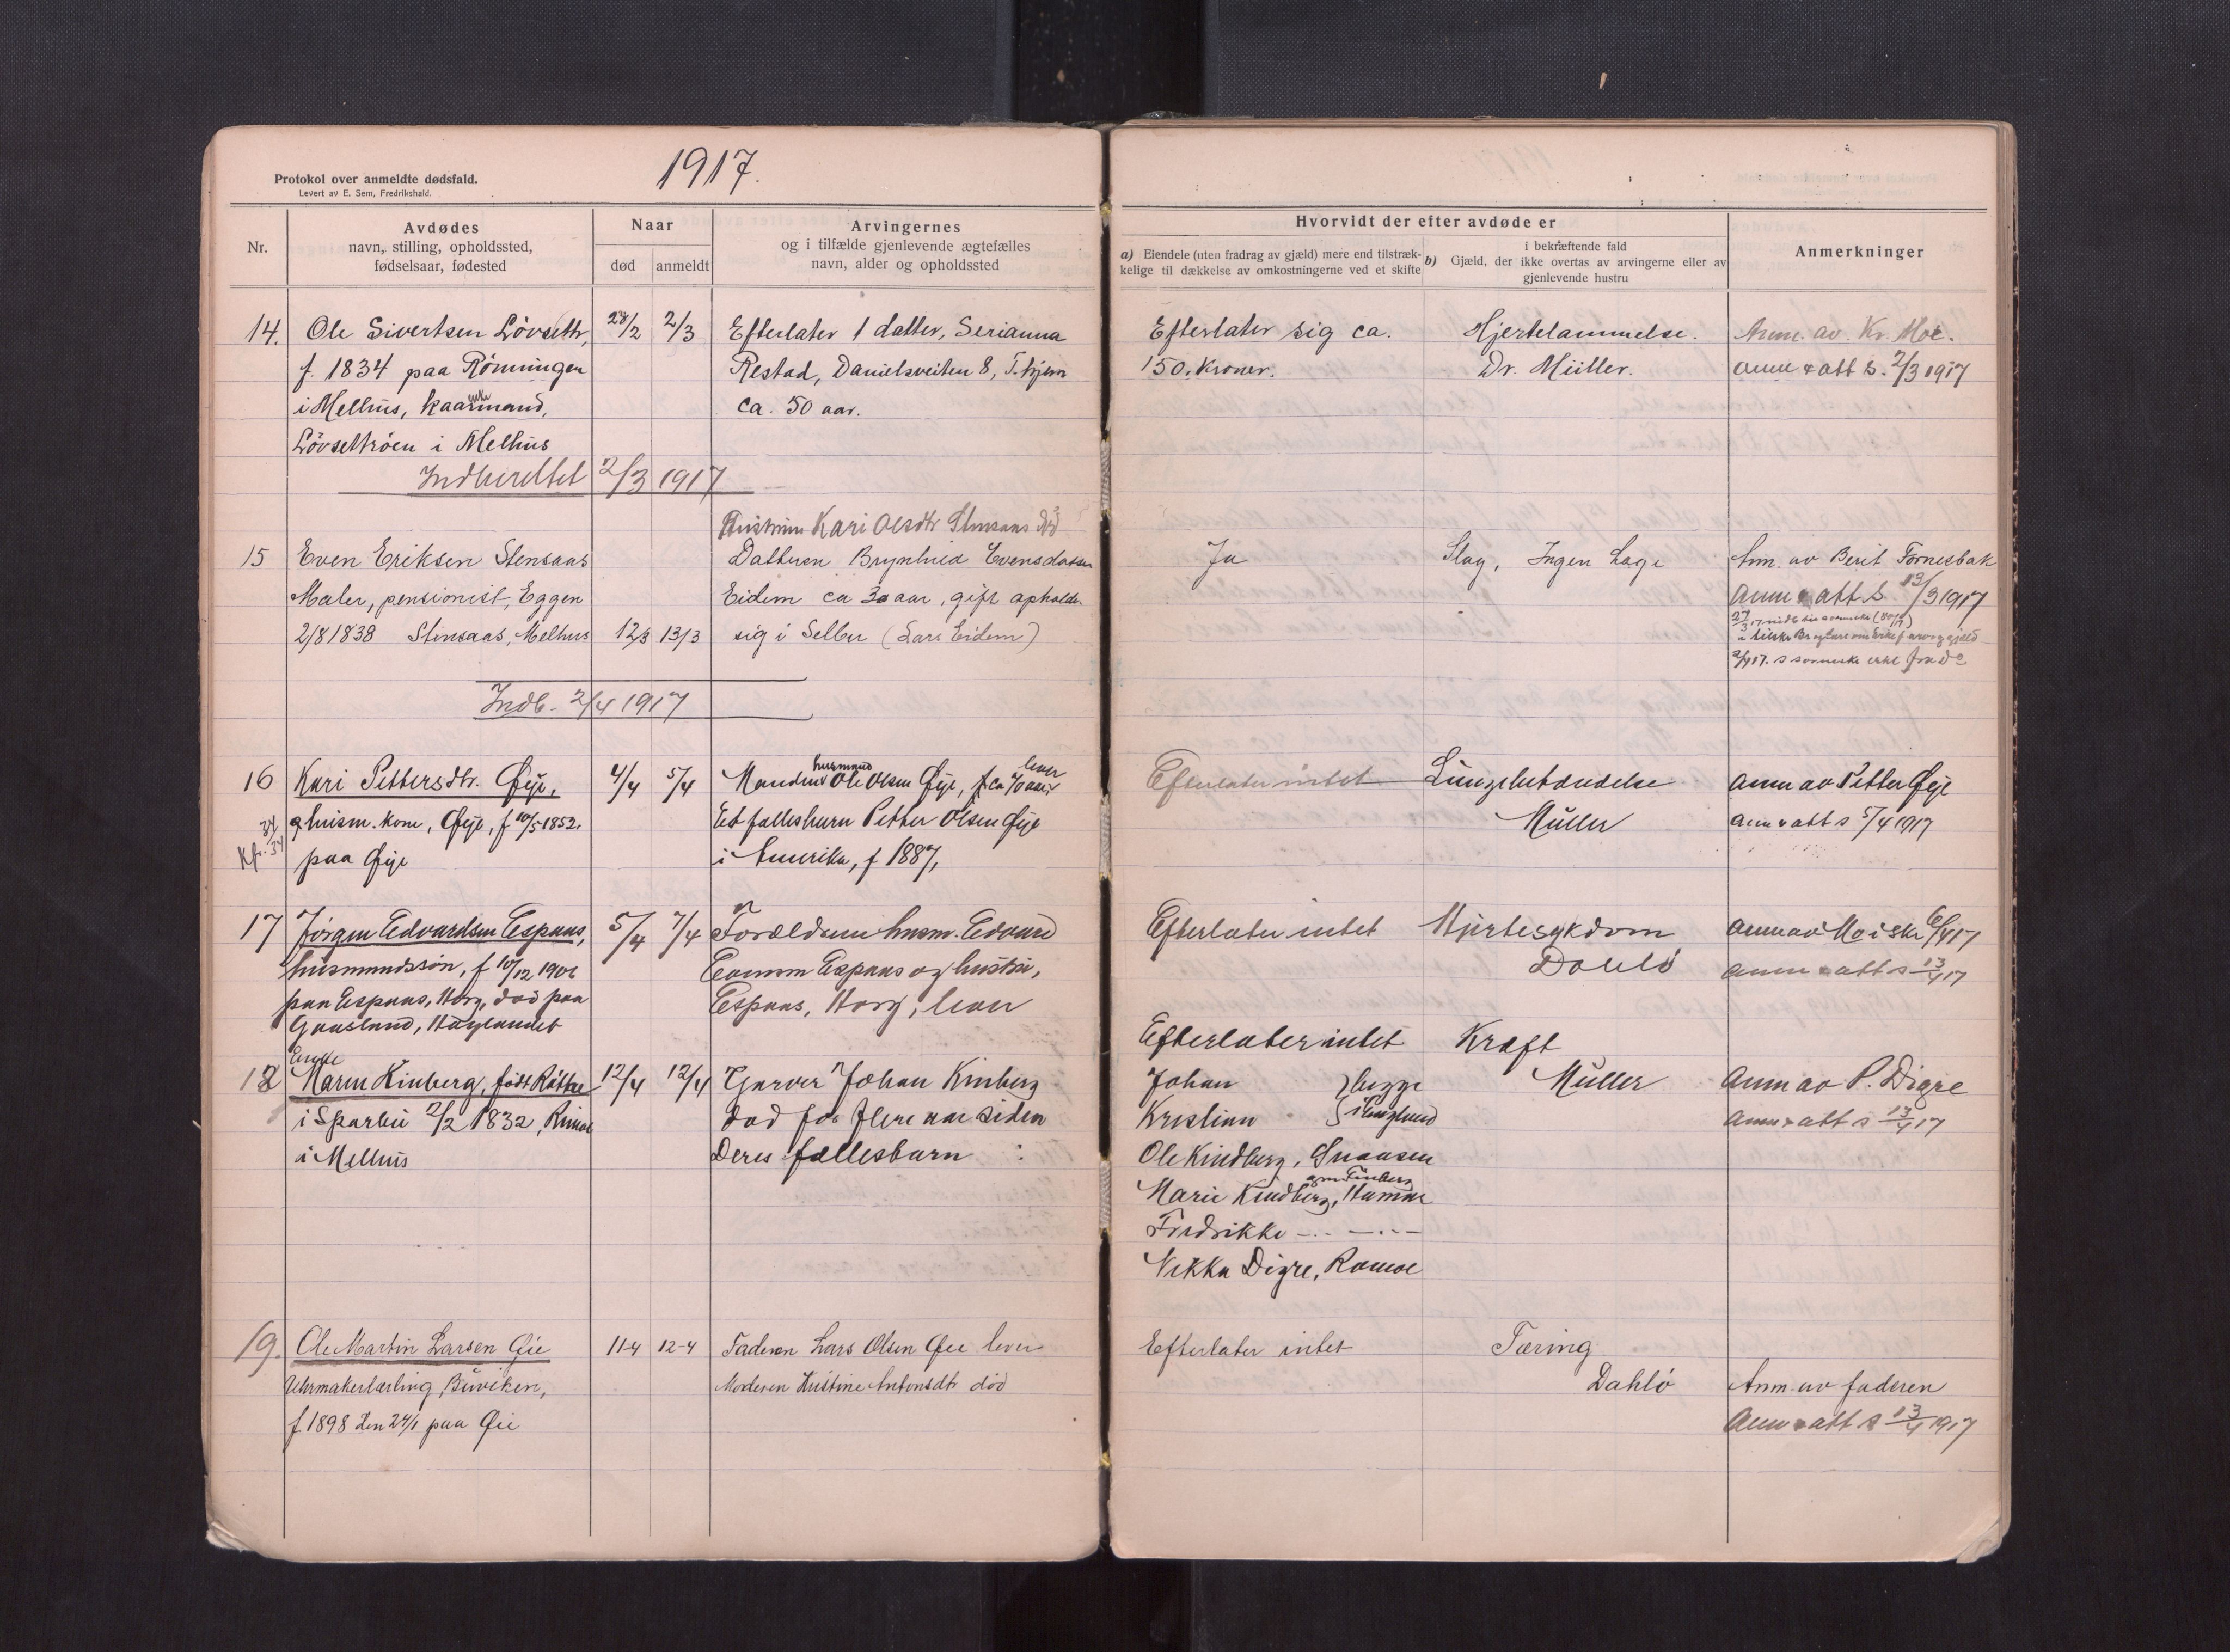 1917.
Protokol over anmeldte dødsfald.
Levert av E. Sem, Fredrikshald.
Nr.
Avdødes
navn, stilling, opholdssted,
fødselsaar, fødested
Naar
død
anmeldt
Arvingernes
og i tilfælde gjenlevende ægtefælles
navn, alder og opholdssted
Hvorvidt der efter avdøde er
a) Eiendele (uten fradrag av gjæld) mere end tilstræk-
kelige til dækkelse av omkostningerne ved et skifte
i bekræftende fald
b) Gjæld, der ikke overtas av arvingerne eller av
gjenlevende hustru
Anmerkninger
14. Ole Sivertsen Lövseth, 28/2 2/3 Efterlater 1 datter, Serianna
f. 1834 paa Rönningen Restad, Danielsveiten 8, T.hjem
i Mellhus, kaarmand, ca. 50 aar.
enke
Lövsethröen i Melhus
Indberettet 2/3 1917
Efterlater sig ca. Hjertelammelse. Anm. av Kr. Moe.
150. Kroner. Dr. Müller. anm & att s. 2/3 1917
Hustruen Kari Olsdtr Stensaas død
15 Even Eriksen Stensaas Datteren Brynhild Evensdatter
Maler, pensionist, Eggen Eidem ca 30 aar, gift opholder
2/8 1838 Stensaas, Melhus 12/3 13/3 sig i Selbu (Lars Eidem)
Ja Slag, Ingen Læge Anm. av Berit Fornesbak
Anm & att s. 13/3 1917
Indb. 2/4 1917
16 Kari Pettersdtr. Øye, 4/4 5/4 Manden husmand Ole Olsen Øye, f. ca 70 aar lever
husm. kone, Øye, f 10/5 1852. Et fællesbarn Petter Olsen Øye
Kfr. 34 paa Øye i Amerika, f 1887,
Efterlater intet Lungebetændelse anm av Petter Øye
Müller anm & att s 5/4 1917
17 Jørgen Edvardsen Espaas, 5/4 7/4 Forældrene husm. Edvard
husmandssøn, f 10/12 Espaas og hustru,
paa Espaas, Horg, død paa Espaas, Horg, lever
Gaasland, Høylandet
Efterlater intet Hjertesykdom anm av 6/4 17
Dahlö anm & att s 13/4 17
Enke
18 Maren Kinberg, født 12/4 12/4 Garver Johan Kinberg
i Sparbu 2/2 1832, død for flere aar siden
i Melhus Deres fællesbarn :
Efterlater intet Kræft
Johan } begge Müller Anm av P. Digre
Kristian } i England anm & att s 13/4 17
Ole Kindberg, Snaasen
Marie Kindberg, Hammer
Fredrikke -..- -..-
Nikka Digre,
19. Ole Martin Larsen Øie 11-4 12-4 Faderen Lars Olsen Øie lever
Uhrmakerlærling, Buviken, Moderen Kristine Antonsdtr död
f. 1898 den 24/1 paa Øie
Efterlater intet Tæring
Dahlö Anm. av faderen
Anm & att s 13/4 1917